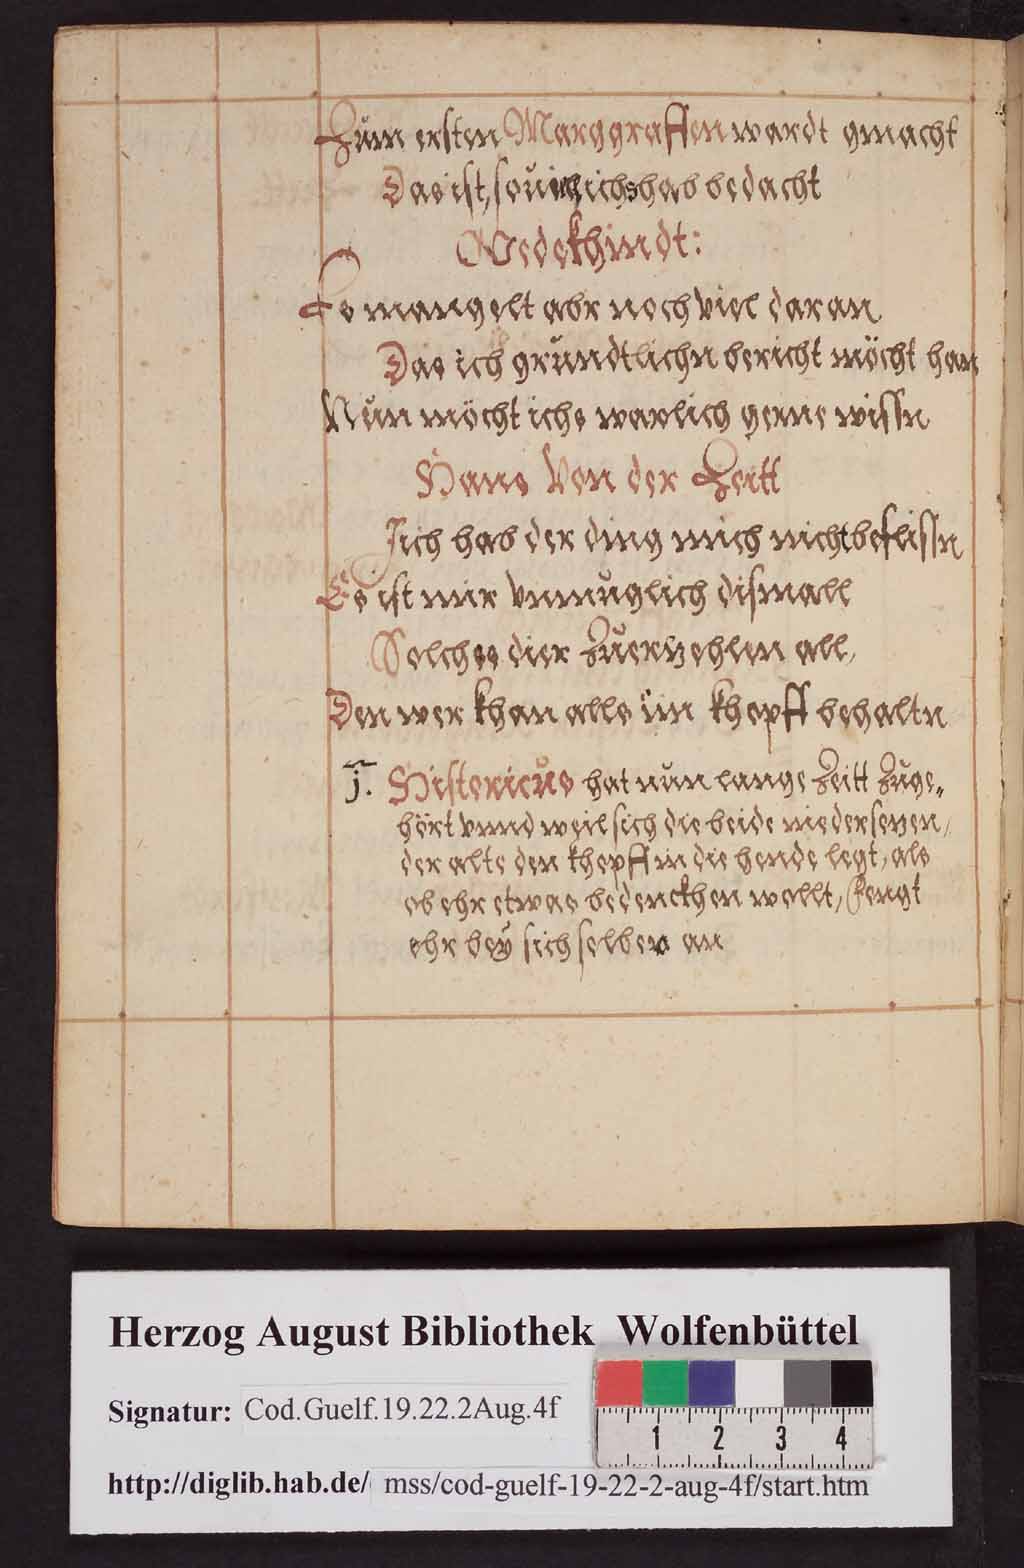 Zům ersten Marggraffen wardt gmacht
Das ist, souiel ichs hab bedacht
Wedekhindt:
Es mangelt abr noch viel daran
Das ich gründtlichn bericht möcht han
Nůn möcht ichs warlich gerne wissn
Hans Von der Zeitt
Jich hab der ding mich nicht beflissn
Es ist mir Vnmůglich dismall
Solches dier Zůerzehlen all,
Den wer khan alls im khopff behaltn
j. Historicůs hat nůn lange Zeitt Zůge„
hört vnnd weil sich die beide niedersezen,
der alte den khopff in die hende legt, als
ob ehr etwas bedenckhen wollt, fengt
ehr beÿ sich selber an
Herzog August Bibliothek Wolfenbüttel
Signatur: Cod.Guelf.19.22.2Aug.4f
1 2 3 4
http://diglib.hab.de/ mss/cod-guelf-19-22-2-aug-4f/start.htm